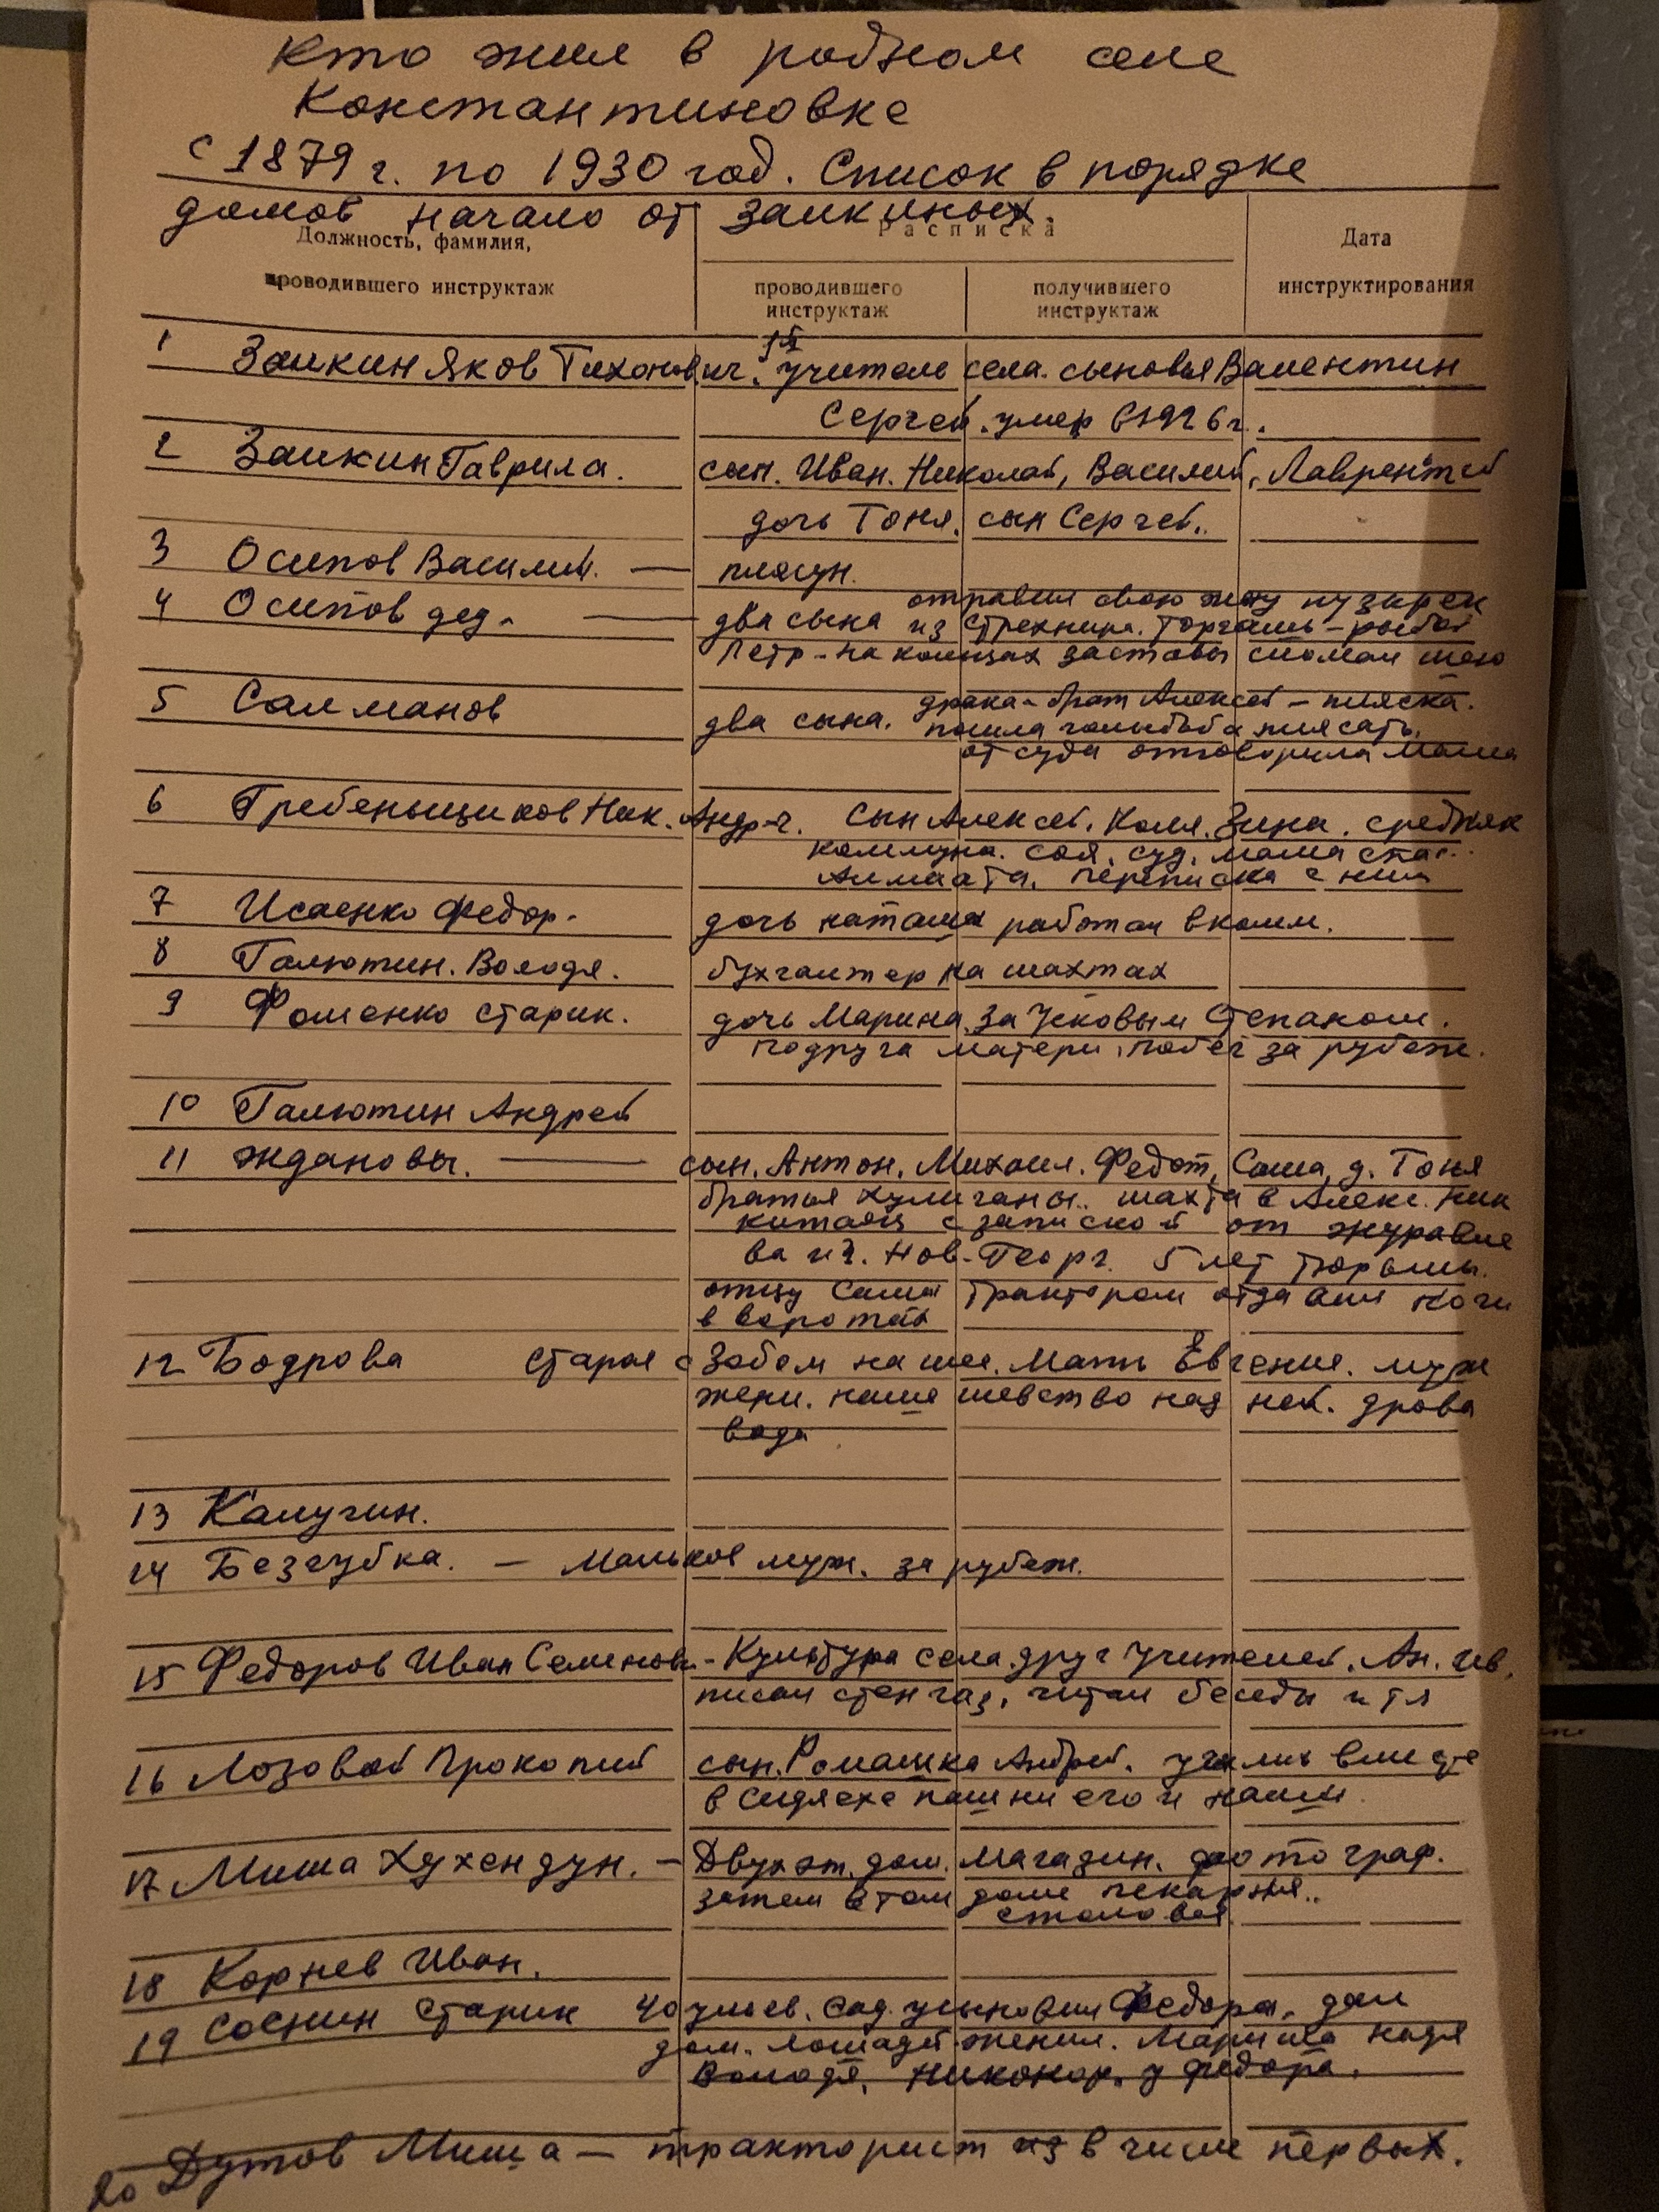 Кто жил в родном селе
Константиновке
с 1879 г. по 1930 год. Список в порядке
домов начало от Заикиных.
Должность, фамилия,
проводившего инструктаж
Расписка
проводившего
инструктаж
получившего
инструктаж
Дата
инструктирования
1 Заикин Яков Тихонович. 1й учитель села. сыновья Валентин
Сергей. умер в 1926 г.
2 Заикин Гаврила. сын. Иван. Николай, Василий, Лаврентий
дочь Тоня. сын Сергей..
3 Осипов Василий. — плясун.
4 Осипов дед. — два сына отравил свою жену пузырек
из стрехнина. торгашь - рыбой
Петр - на кольцах заставы сломал шею
5 Салманов два сына. драка - брат Алексей - пляска.
пошла голытьба плясать.
от суда отговорила мама
6 Гребеньщиков Ник. Андр-ч. Сын Алексей. Коля. Зина. средняк
коммуна. соя. суд. мама
Алмаата. переписка с ним
7 Исаенко Федор. дочь наташа работал в комм.
8 Галютин. Володя. бухгалтер на шахтах
9 Фоменко старик. дочь Марина. За Усковым Степаном.
подруга матери. побег за рубеж.
10 Галютин Андрей
11 Ждановы. — сын. Антон. Михаил. Федот, Саша, д. Тоня
братья хулиганы.. шахта в Алекс. Ник
китаец с запиской от журавле
ва из. Нов-Георг. 5 лет тюрьмы.
отцу Саши трактором отдавил ноги
в воротах
12 Бодрова старая с зобом на шее. Мать Евгения. муж
жени. наше шевство над ней. дрова
вода
13 Калугин.
14 Беззубка. — Мальков муж. за рубеж.
15 Федоров Иван Семенови - Культура села. друг Учителей. Ан. Ив.
писал стенгаз, читал беседы и тд
16 Лозовой Прокопий сын. Ромашка Андрей. учились вместе
в Сидяехе пашни его и наши.
17 Миша Хухендун. — Двухэт. дом. Магазин. фотограф.
затем в том доме пекарня..
столовая
18 Корнев Иван.
19 Соснин старик 40 ульев. Сад. усыновил Федора. дал
дом. лошадей. женил. Маришка надя
Володя. Никонор. у федора.
20 Дутов Миша — тракторист из в числе первых.